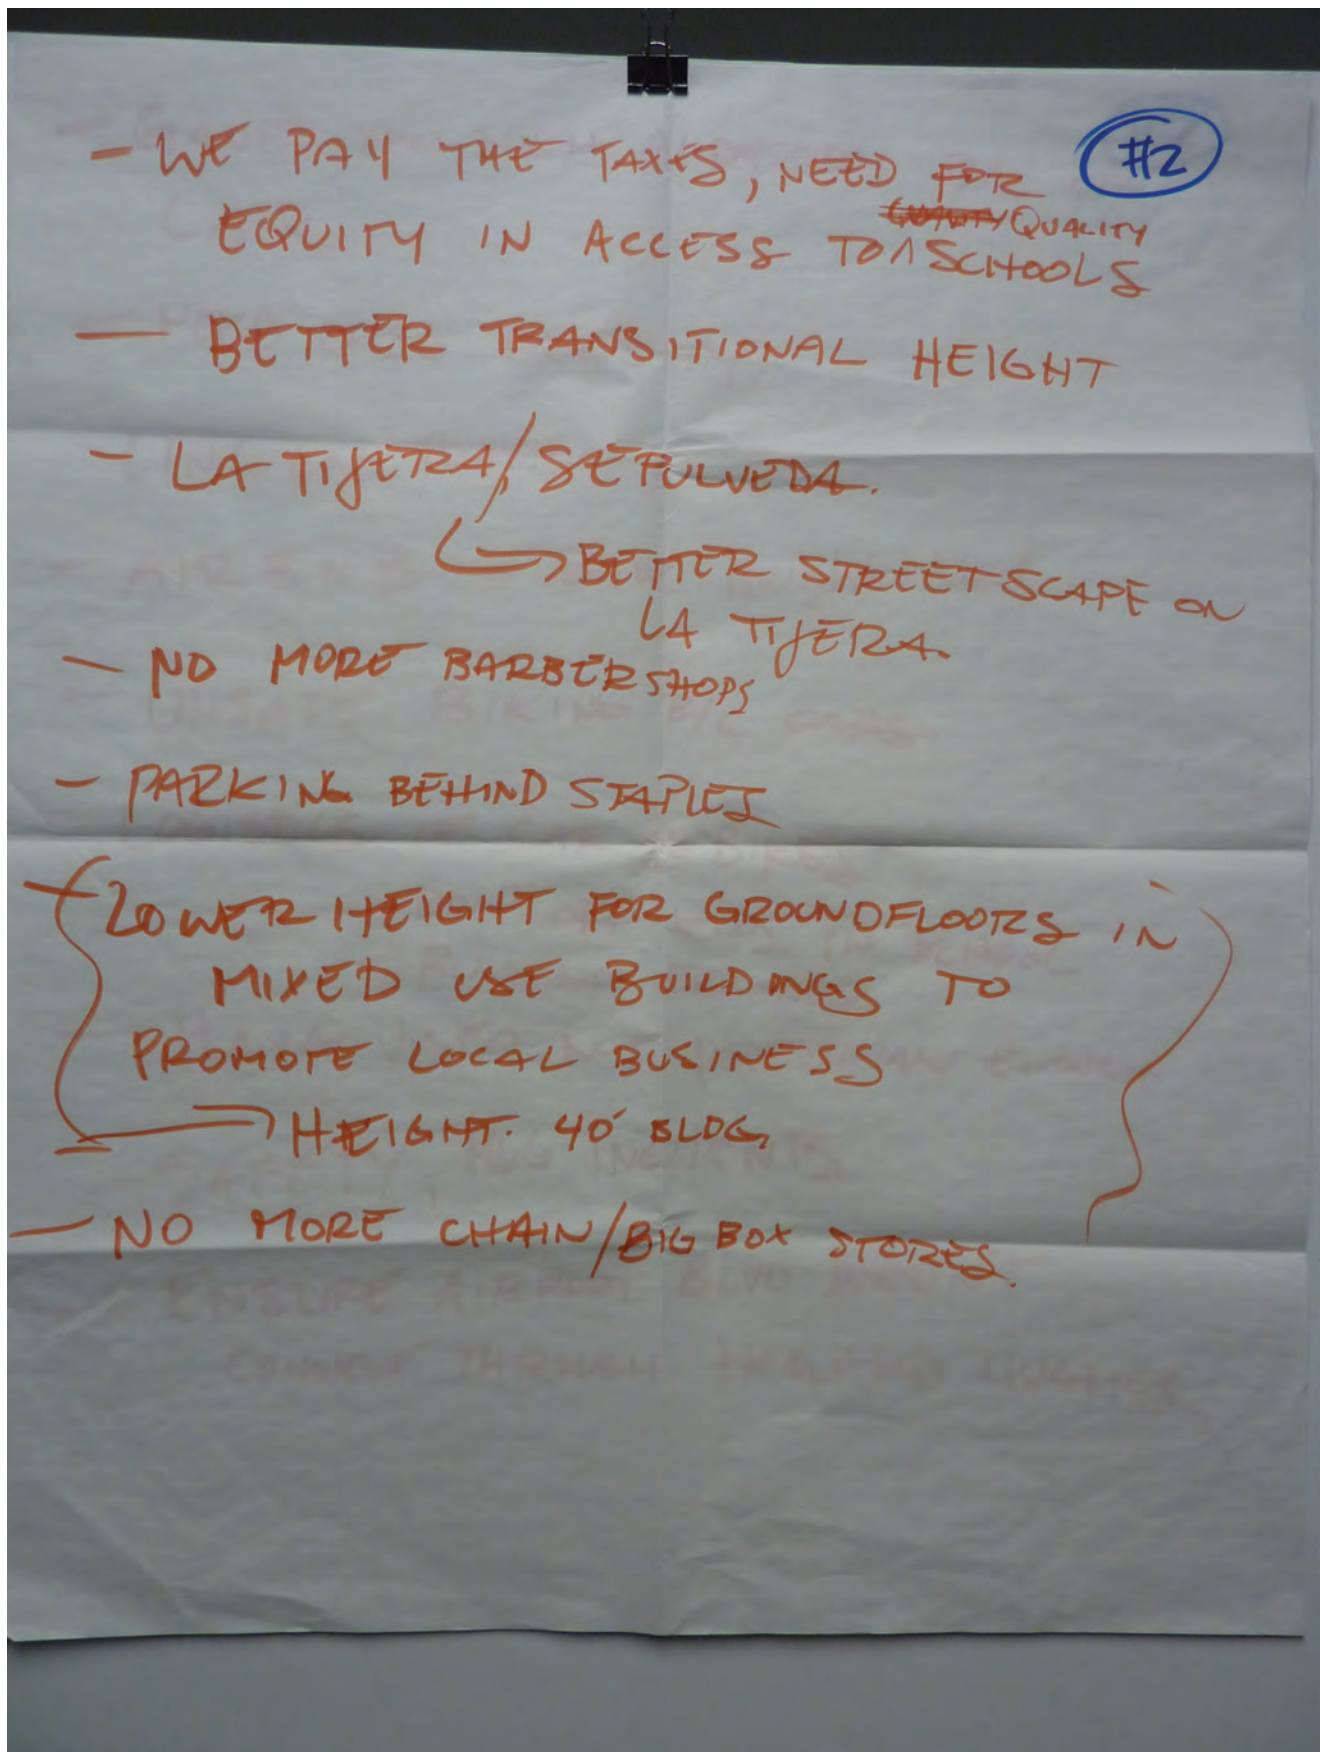 #2
- WE PAY THE TAXES, NEED FOR
QUALITY
EQUITY IN ACCESS TO ^ SCHOOLS
— BETTER TRANSITIONAL HEIGHT
- LA TIJERA/SEPULVEDA.
→ BETTER STREETSCAPE ON
LA TIJERA.
- NO MORE BARBERSHOPS
- PARKING BEHIND STAPLES
- LOWER HEIGHT FOR GROUNDFLOORS IN
MIXED USE BUILDINGS TO
PROMOTE LOCAL BUSINESS
→ HEIGHT. 40' BLDG.
- NO MORE CHAIN/BIG BOX STORES.